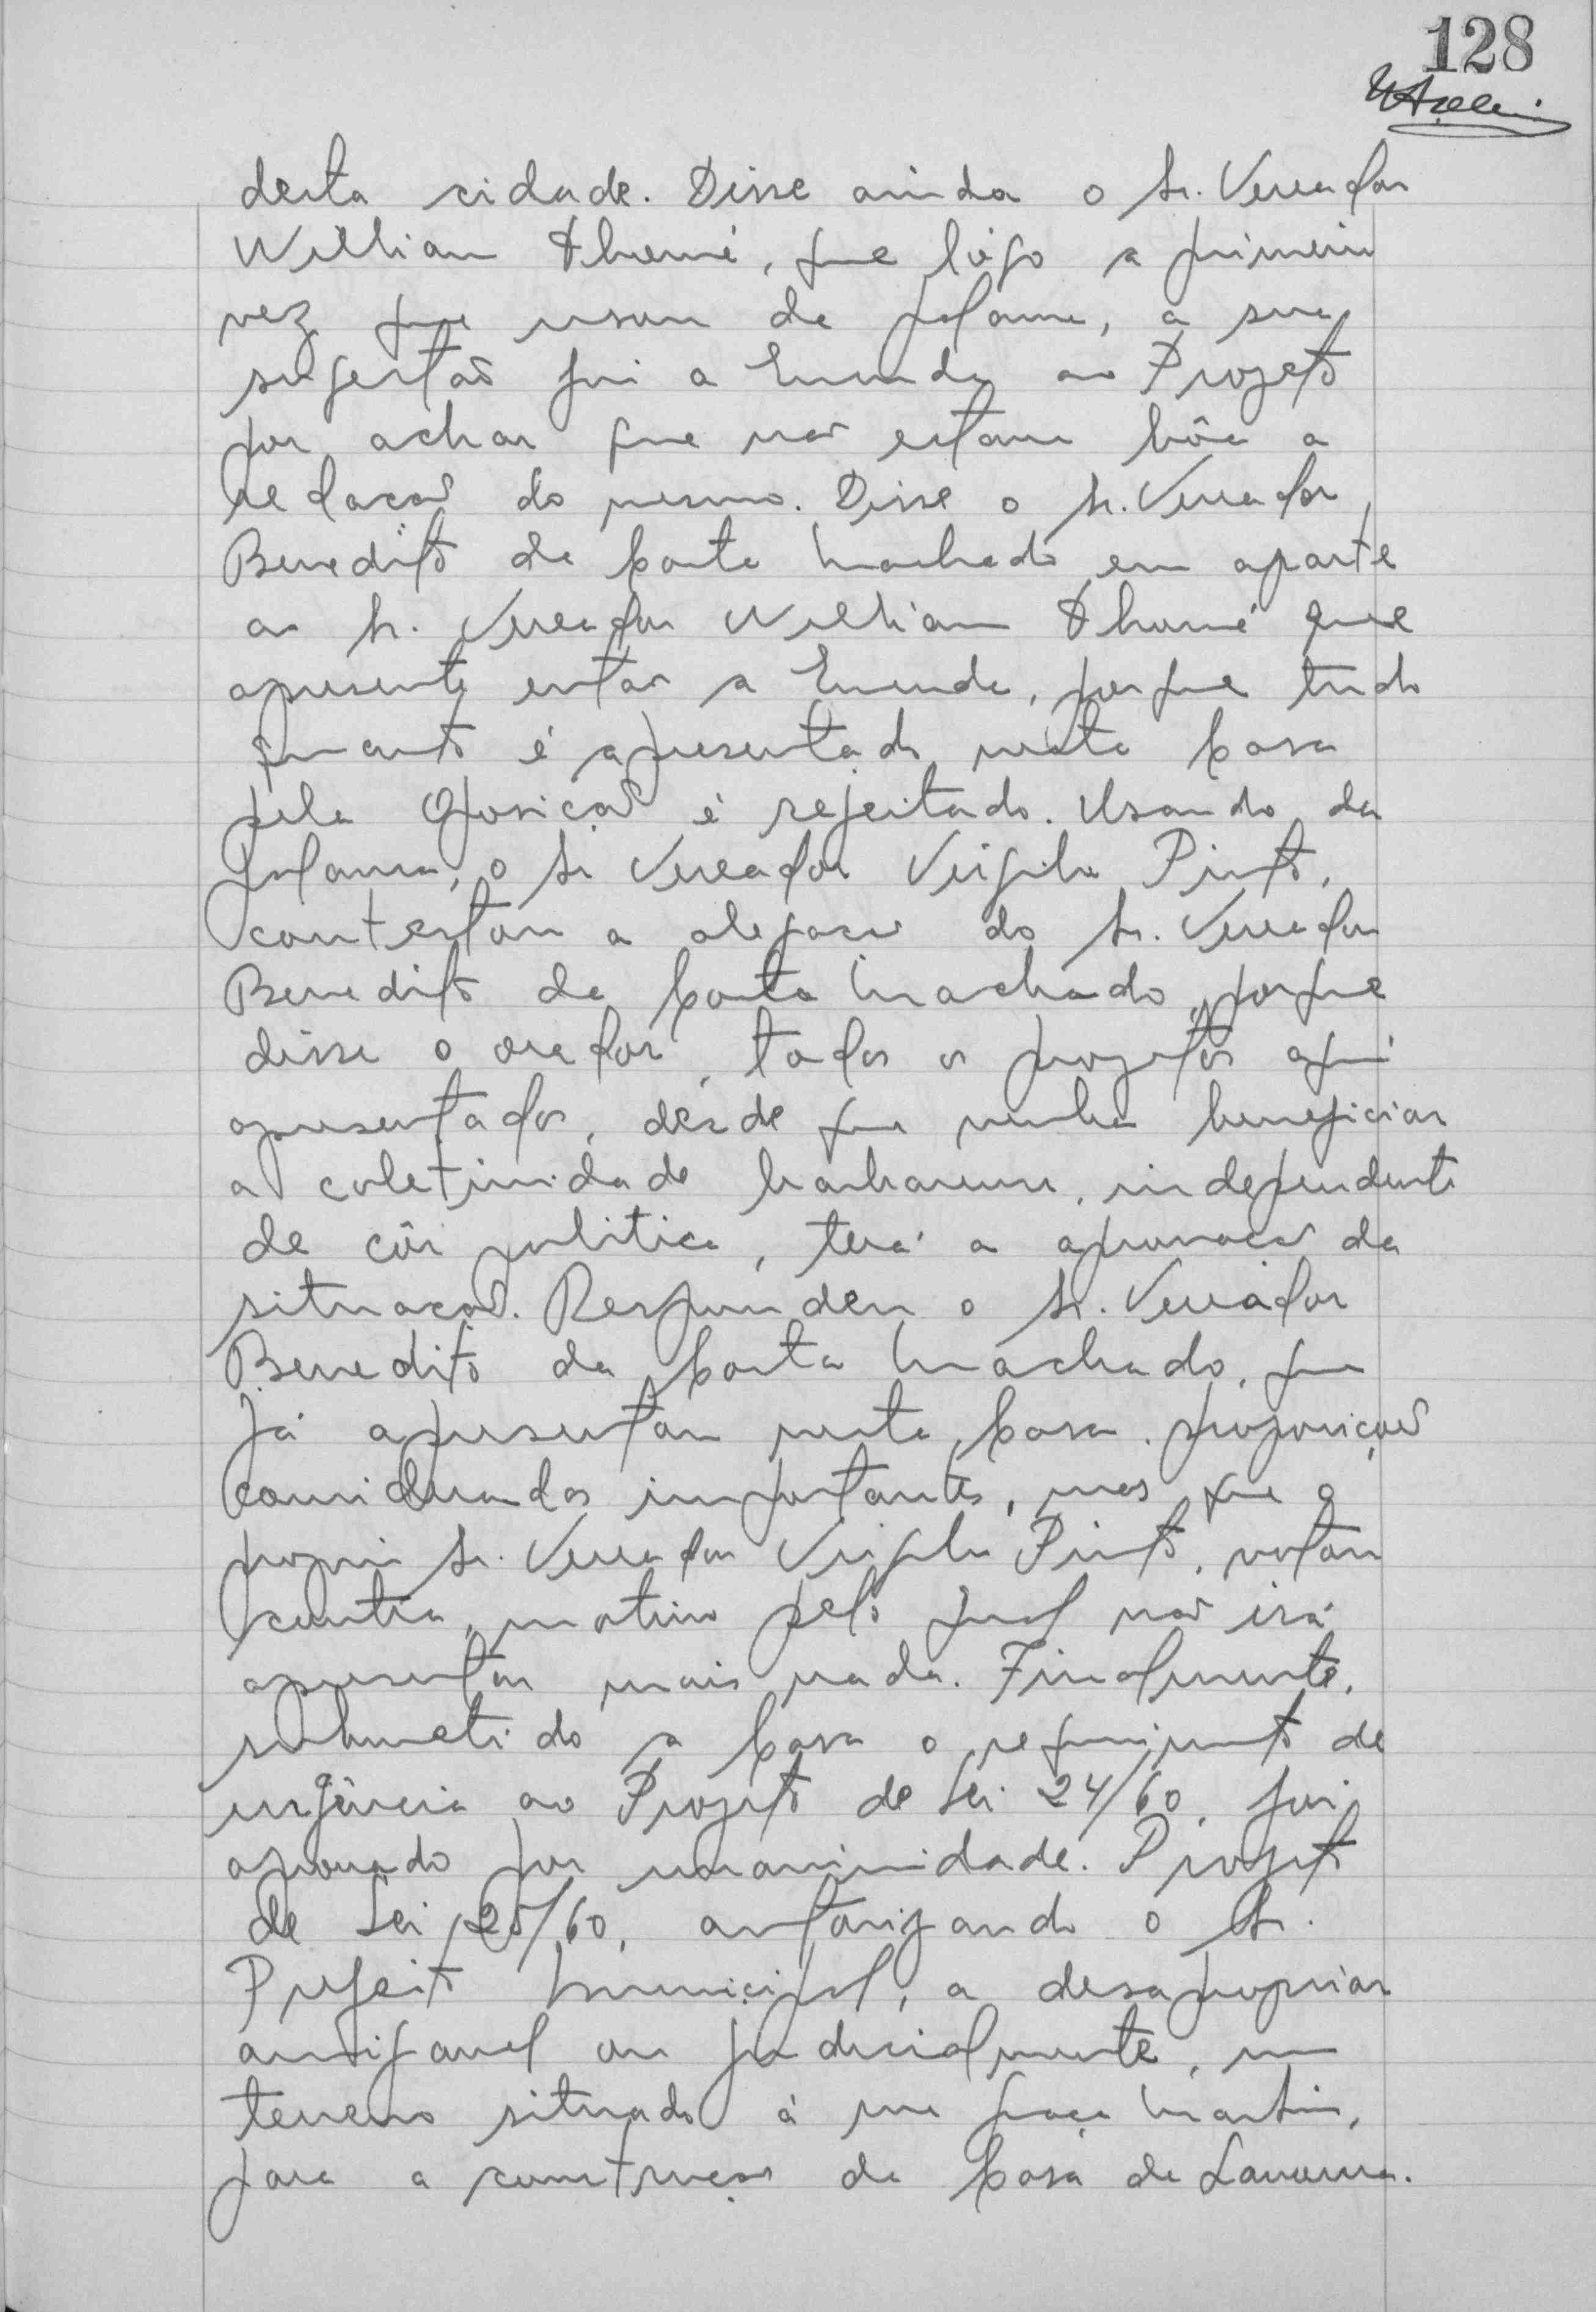 128
desta cidade. Disse ainda o Sr. Vereador
Willian Thomé, que lógo a primeira
vez que usou da palavra, a sua
sugestão foi a Emenda ao Projeto
por achar que não estava bôa a
redação do mesmo. Disse o Sr. Vereador
Benedito da Costa Machado em aparte
ao Sr. Vereador Willian Thomé que
apresente então a Emenda, porque tudo
quanto é apresentado nesta Casa
pela Oposição é rejeitado. Usando da
palavra, o Sr Vereador Virgilio Pinto,
contestou a alegação do Sr. Vereador
Benedito da Costa Machado, porque
disse o orador, todos os projetos aqui
apresentados, desde que venha beneficiar
a coletividade, independente
de côr politica, terá a aprovação da
situação. Respondeu o Sr. Vereador
Benedito da Costa Machado, que
já apresentou nesta Casa, proposições
consideradas importantes, mas que o
proprio Sr. Vereador Virgilio Pinto, votou
contra, motivo pelo qual não irá
apresentar mais nada. Finalmente,
submetido a Casa o requerimento de
urgência ao Projeto de Lei 24/60, foi
aprovado por unanimidade. Projeto
de Lei 25/60, autorizando o Sr.
Prefeito Municipal, a desapropriar
amigavel ou judicialmente, um
terreno situado á rua Graça Martins,
para a construção da Casa da Lavoura.